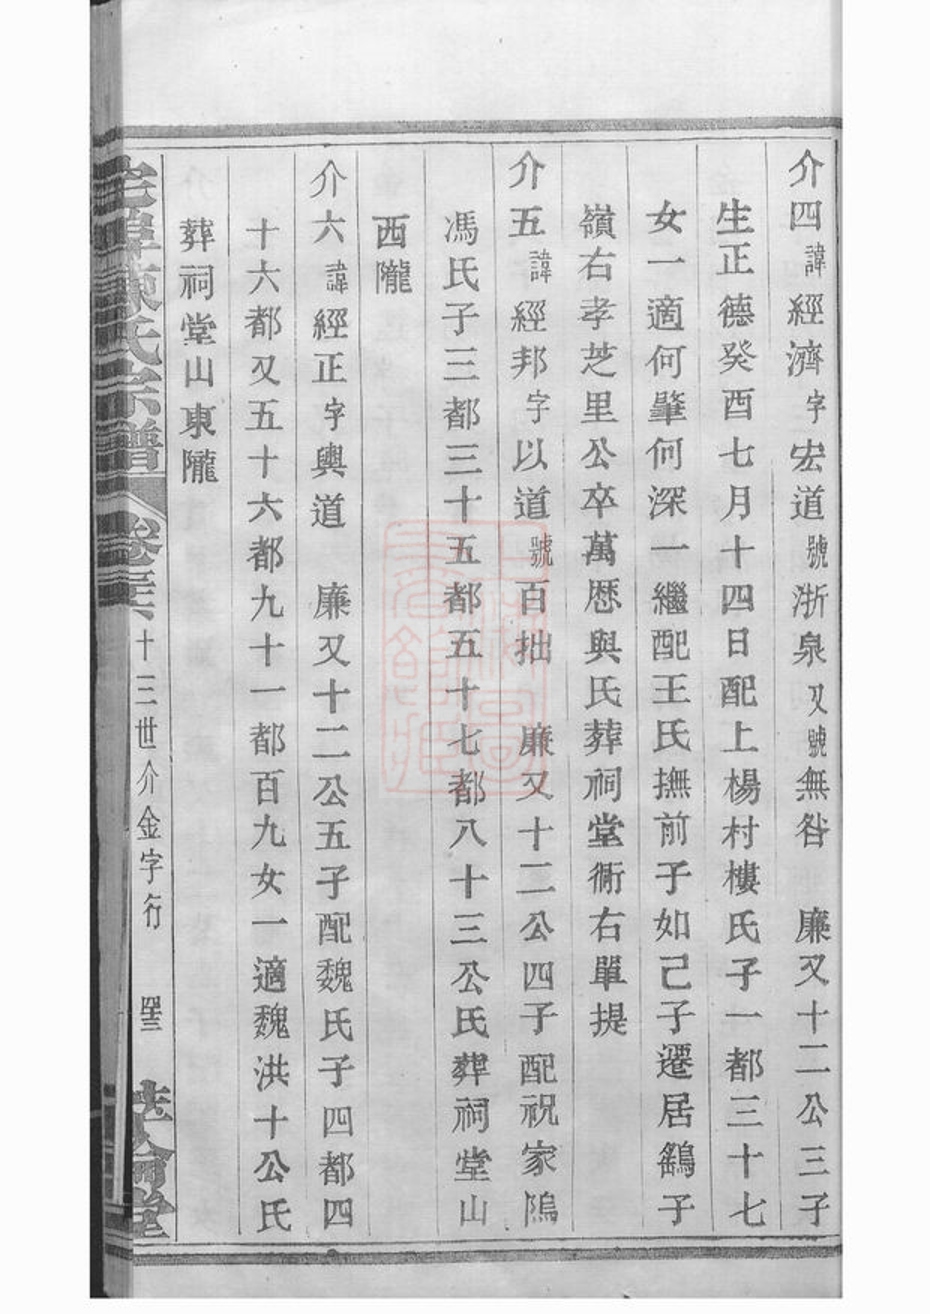 介四諱經濟字宏道號浙泉又號無咎　廉又十二公三子
生正德癸酉七月十四日配上楊村樓氏子一都三十七
女一適何肇何深一繼配王氏撫前子如己子遷居鶴子
嶺右孝芝里公卒萬歷與氏葬祠堂衕右單提
介五諱經邦字以道號百拙　廉又十二公四子配祝家隖
馮氏子三都三十五都五十七都八十三公氏葬祠堂山
西隴
介六諱經正字輿道　廉又十二公五子配魏氏子四都四
十六都又五十六都九十一都百九女一適魏洪十公氏
葬祠堂山東隴
氏宗譜
十三世介金字行